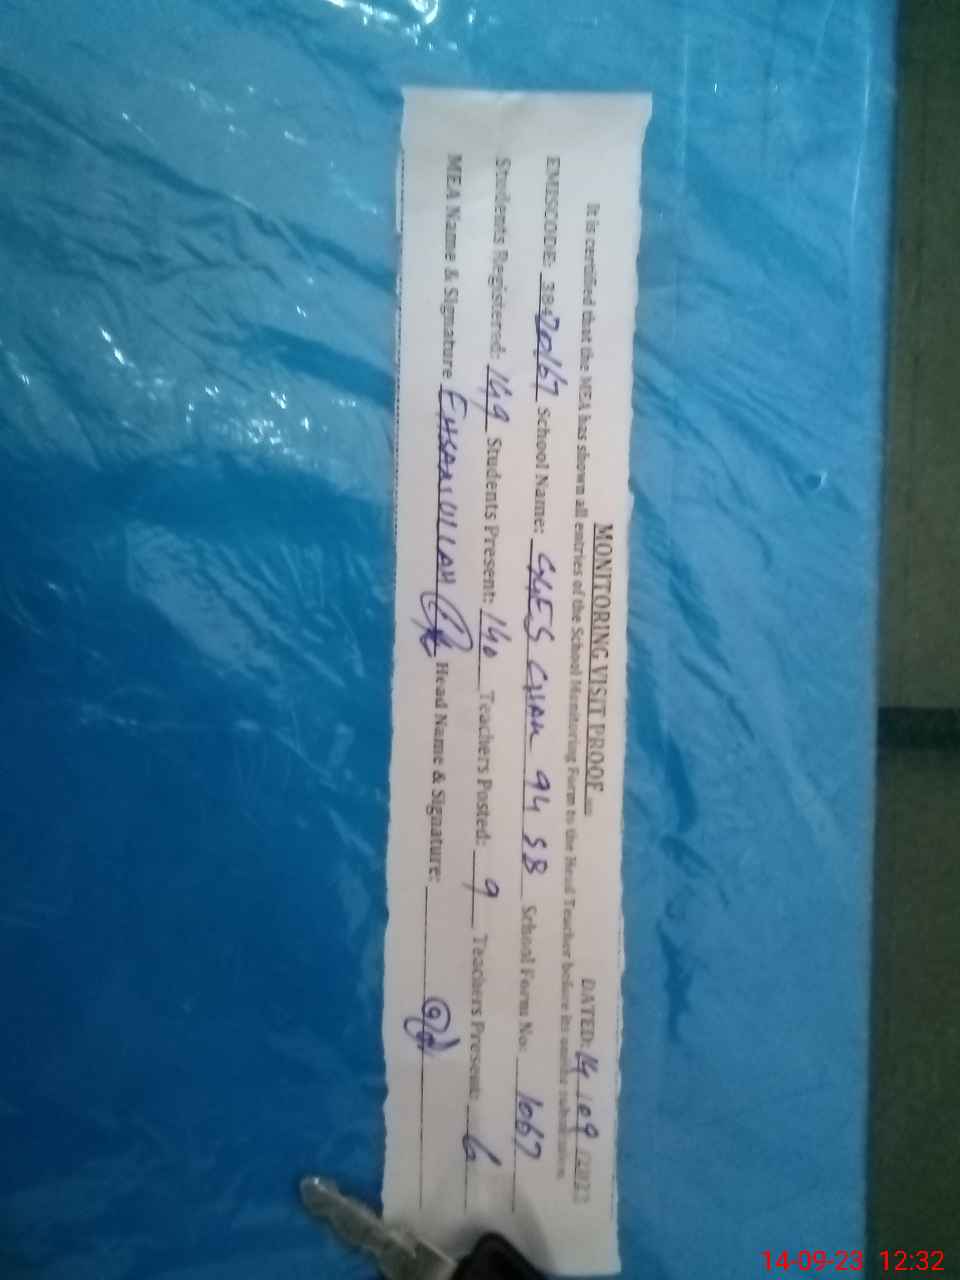 MONITORING VISIT PROOF
DATED: 14 / 09 /202
It is certified that the MEA has shown all entries of the School Monitoring Form to the Head Teacher before its online submission.
EMISCODE: 38470167 School Name: GGES CHAK 94 SB School Form No: 1067
Students Registered: 149 Students Present: 140 Teachers Posted: 9 Teachers Present: 6
MEA Name & Signature EHSAN ULLAH Head Name & Signature:
14-09-23 12:32